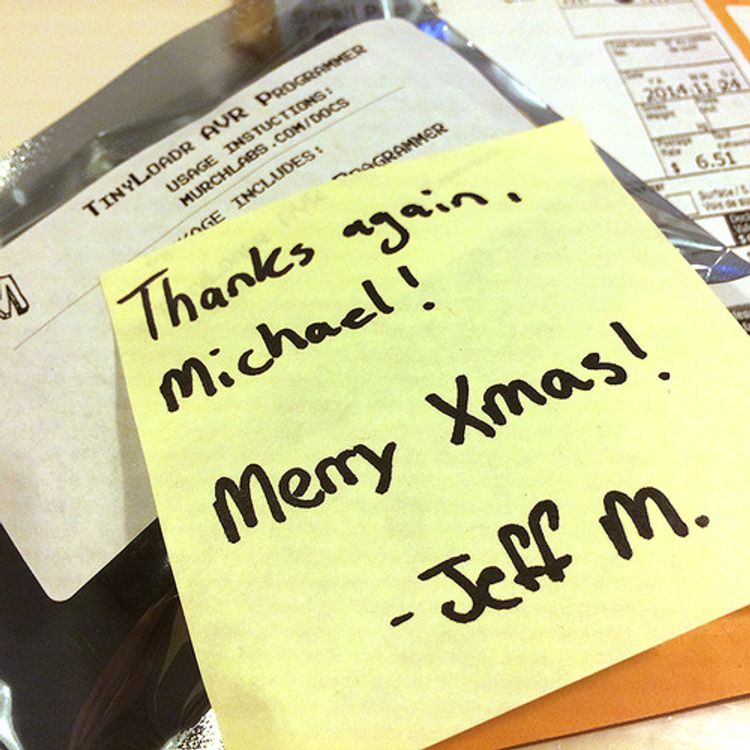 Small P
TinyLoadr AVR Programmer
Usage Instuctions:
murchlabs.com/docs
Includes:
Programmer
M
2014 11 24
$ 6.51
Thanks again,
Michael!
Merry Xmas!
- Jeff M.